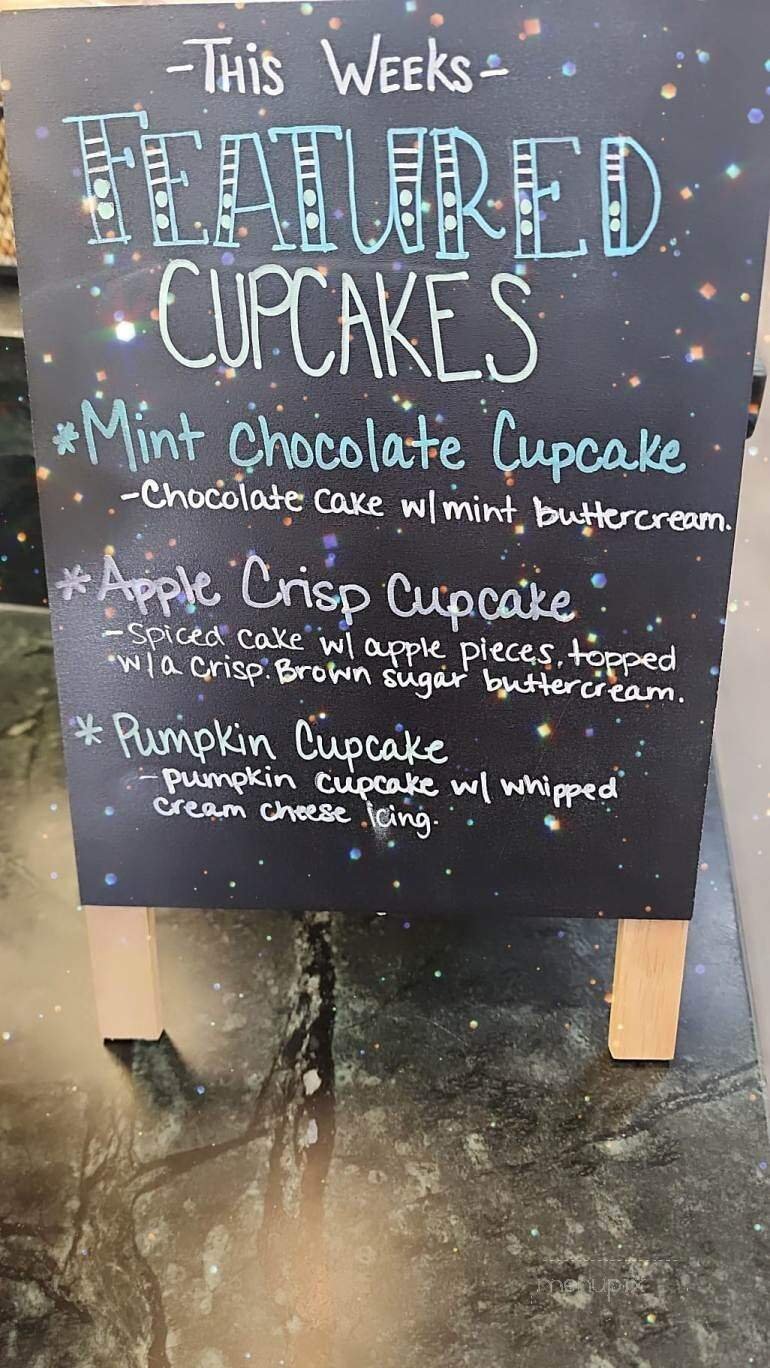 -This Weeks-
FEATURED
CUPCAKES
*Mint Chocolate Cupcake
-Chocolate cake w/mint buttercream.
*Apple Crisp Cupcake
-spiced cake w/ apple pieces, topped
w/a crisp. Brown sugar buttercream.
* Pumpkin Cupcake
-pumpkin cupcake w/ whipped
cream cheese icing.
menupix